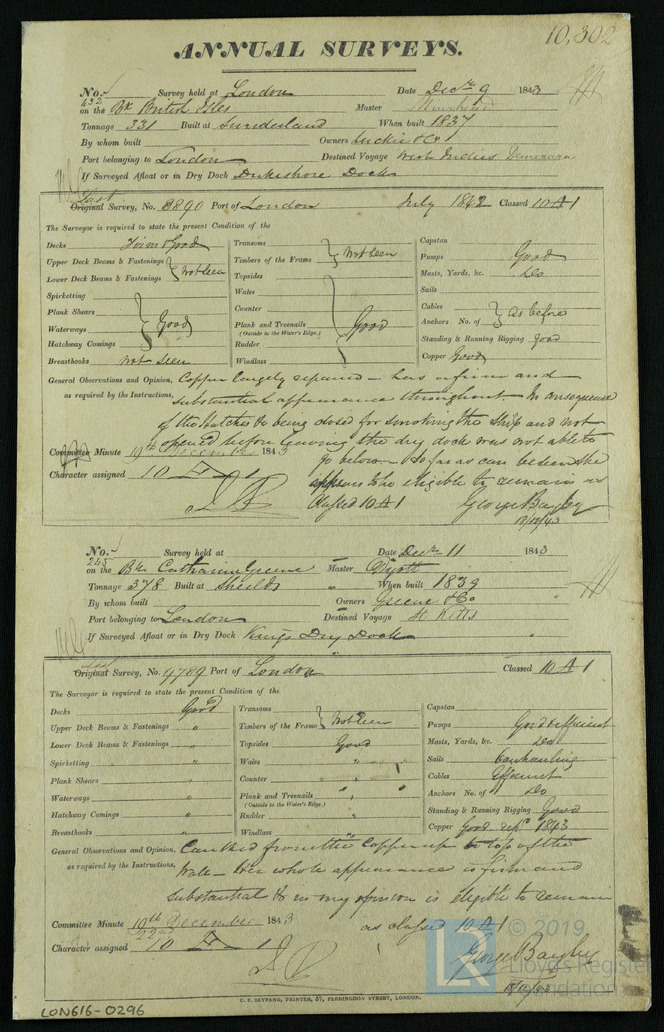 10,302
ANNUAL SURVEYS.
No. 432 Survey held at London Date Decr 9 1843
on the Bk British Isles Master
Tonnage 331 Built at Sunderland When built 1837
By whom built Owners Luckie & Co
Port belonging to London Destined Voyage West Indies Demerara
If Surveyed Afloat or in Dry Dock Dukeshore Dock
Last
Original Survey, No. 8890 Port of London July 1842 Classed 10 A 1
The Surveyor is required to state the present Condition of the
Decks Firm & Good
Upper Deck Beams & Fastenings
Lower Deck Beams & Fastenings } Not Seen
Spirketting
Plank Shears
Waterways
Hatchway Comings } Good
Breasthooks not seen
Transoms
Timbers of the Frame } Not Seen
Topsides
Wales
Counter
Plank and Treenails
(Outside to the Water's Edge.)
Rudder
Windlass } Good
Capstan
Pumps Good
Masts, Yards, &c. Do
Sails
Cables
Anchors No. of } As before
Standing & Running Rigging good
Copper Good
General Observations and Opinion, Copper largely repaired — has a firm and
as required by the Instructions, substantial appearance throughout — In consequence
of the Hatches being closed for smoking the ship and not
opened before leaving the dry dock was not able to
Committee Minute 19th December 1843
go below — so far as can be seen she
Character assigned 10 A 1
appears to be eligible to remain as
Classed 10 A 1 George Bayley
12/12/43
No. 245 Survey held at Date Decr 11 1843
on the Bk Catharine Greene Master
Tonnage 378 Built at Shields When built 1839
By whom built Owners Greene & Co
Port belonging to London Destined Voyage St Kitts
If Surveyed Afloat or in Dry Dock Kings Dry Dock
Last
Original Survey, No. 9789 Port of London Classed 10 A 1
The Surveyor is required to state the present Condition of the
Decks Good
Upper Deck Beams & Fastenings "
Lower Deck Beams & Fastenings "
Spirketting "
Plank Shears "
Waterways "
Hatchway Comings "
Breasthooks "
Transoms
Timbers of the Frame } Not Seen
Topsides Good
Wales "
Counter "
Plank and Treenails "
(Outside to the Water's Edge.)
Rudder "
Windlass "
Capstan
Pumps Good & efficient
Masts, Yards, &c. Do
Sails Overhauling
Cables Efficient
Anchors No. of Do
Standing & Running Rigging Good
Copper Good 1843
General Observations and Opinion, Caulked from the Copper up to top of the
as required by the Instructions, Wale — Her whole appearance is firm and
substantial & in my opinion is eligible to remain
Committee Minute 19th December 1843
as classed 10 A 1
Character assigned 10 A 1
George Bayley
© 2019
Lloyd's Register
Foundation
C. F. SEYFANG, PRINTER, 57, FARRINGDON STREET, LONDON.
LON616-0296